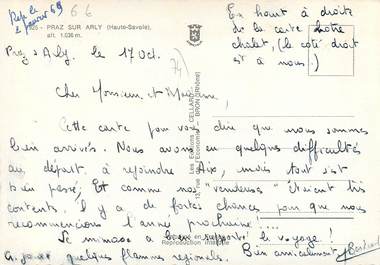 Rep le
2 janvier 69
66
1926 - PRAZ SUR ARLY (Haute-Savoie),
alt. 1.036 m.
En haut à droite
de la carte notre
chalet, (le côté droit
est à nous!)
Praz s/Arly. le 17 Oct.
74
Cher Monsieur et Madame,
Cette carte pour vous dire que nous sommes
bien arrivés. Nous avons eu quelques difficultés
au départ, à rejoindre Aix, mais tout s'est
bien passé, Et comme nos "vendeuses" étaient très
contents, il y a de fortes chances pour que nous
recommencions l'année prochaine...
Le mimosa a bien supporté le voyage!
Ci-joint quelques flammes régionales.
Bien amicalement
Les Editions CELLARD
12, rue de l'Economie - BRON (Rhône)
Reproduction interdite